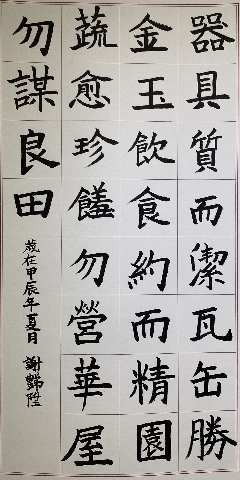 器具質而潔瓦缶勝
金玉飲食約而精園
蔬愈珍饈勿營華屋
勿謀良田
歲在甲辰年夏日 謝懿陞